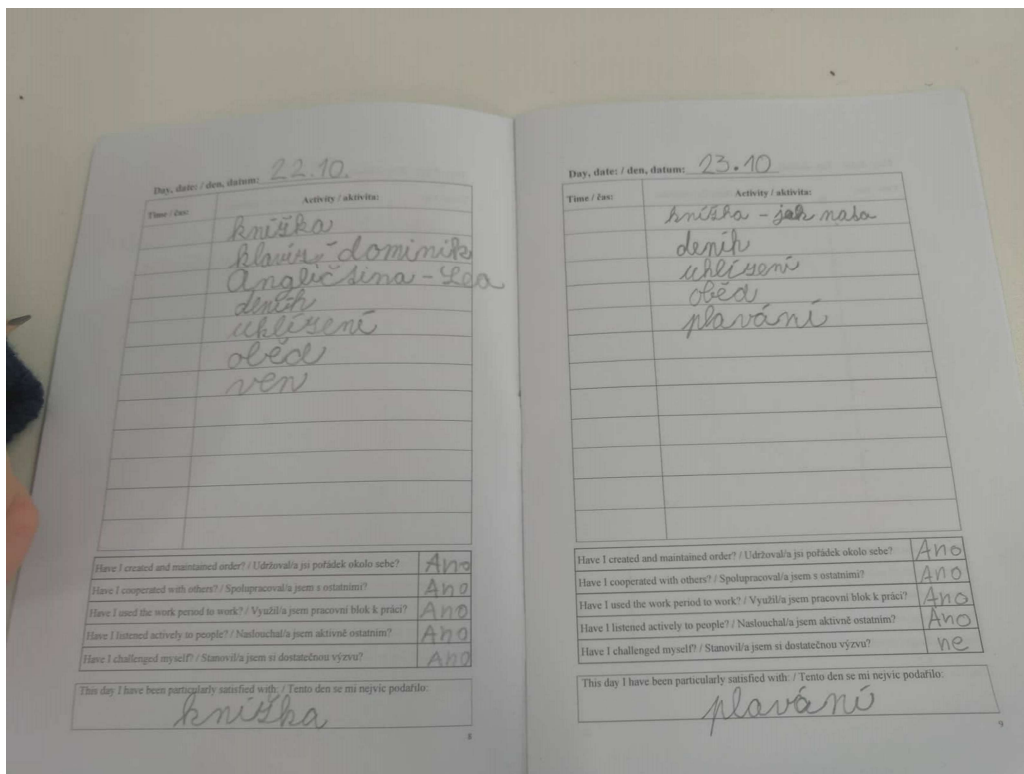 Day, date: / den, datum: 22.10.
Time / čas: Activity / aktivita:
knížka
klavír - dominik
Angličtina - Lea
deník
uklízení
oběd
ven
Have I created and maintained order? / Udržoval/a jsi pořádek okolo sebe? Ano
Have I cooperated with others? / Spolupracoval/a jsem s ostatními? Ano
Have I used the work period to work? / Využil/a jsem pracovní blok k práci? Ano
Have I listened actively to people? / Naslouchal/a jsem aktivně ostatním? Ano
Have I challenged myself? / Stanovil/a jsem si dostatečnou výzvu? Ano
This day I have been particularly satisfied with: / Tento den se mi nejvíc podařilo:
knížka
8
Day, date: / den, datum: 23.10
Time / čas: Activity / aktivita:
knížka - jak
deník
uklízení
oběd
plavání
Have I created and maintained order? / Udržoval/a jsi pořádek okolo sebe? Ano
Have I cooperated with others? / Spolupracoval/a jsem s ostatními? Ano
Have I used the work period to work? / Využil/a jsem pracovní blok k práci? Ano
Have I listened actively to people? / Naslouchal/a jsem aktivně ostatním? Ano
Have I challenged myself? / Stanovil/a jsem si dostatečnou výzvu? ne
This day I have been particularly satisfied with: / Tento den se mi nejvíc podařilo:
plavání
9